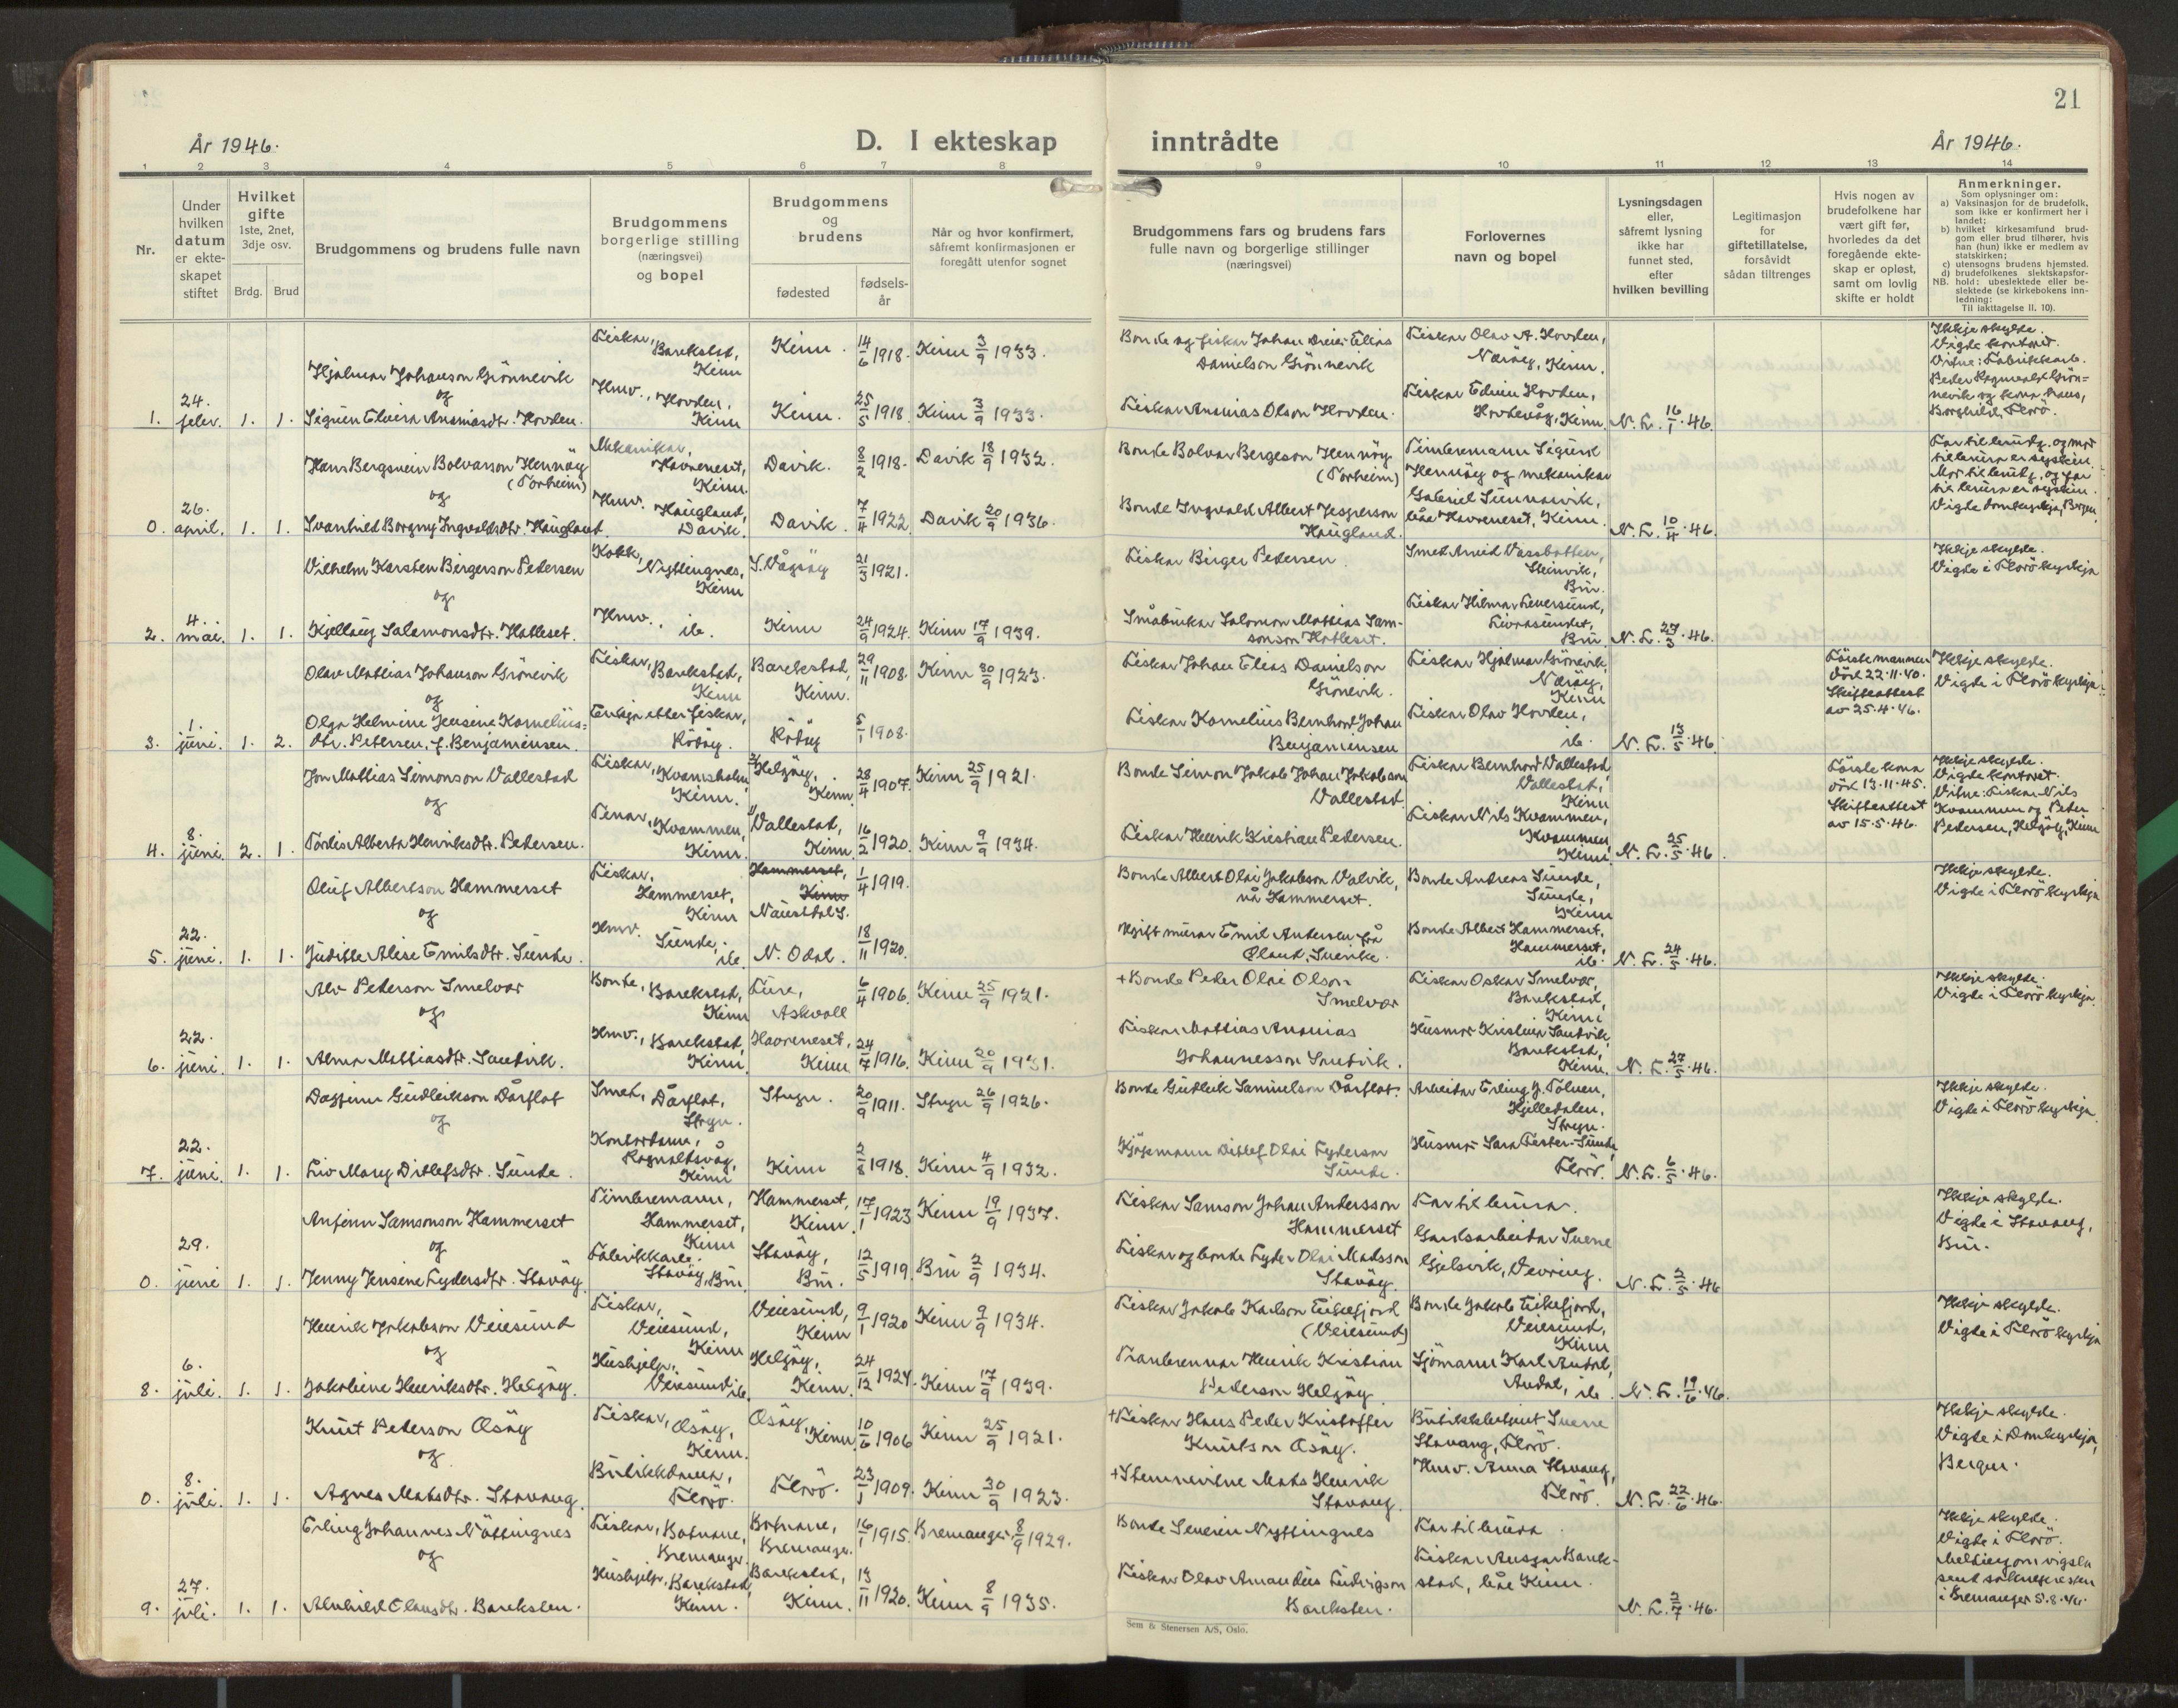 21
År 1946.
D. I ekteskap
inntrådte
År 1946.
1 2 3 4 5 6 7 8 9 10 11 12 13 14
Nr.
Under
hvilken
datum
er ekte-
skapet
stiftet
Hvilket
gifte
1ste, 2net,
3dje osv.
Brdg. Brud
Brudgommens og brudens fulle navn
Brudgommens
borgerlige stilling
(næringsvei)
og bopel
Brudgommens
og
brudens
fødested
fødsels-
år
Når og hvor konfirmert,
såfremt konfirmasjonen er
foregått utenfor sognet
Brudgommens fars og brudens fars
fulle navn og borgerlige stillinger
(næringsvei)
Forlovernes
navn og bopel
Lysningsdagen
eller,
såfremt lysning
ikke har
funnet sted,
efter
hvilken bevilling
Legitimasjon
for
giftetillatelse,
forsåvidt
sådan tiltrenges
Hvis nogen av
brudefolkene har
vært gift før,
hvorledes da det
foregående ekte-
skap er opløst,
samt om lovlig
skifte er holdt
Anmerkninger.
Som oplysninger om:
a) Vaksinasjon for de brudefolk,
som ikke er konfirmert her i
landet;
b) hvilket kirkesamfund brud-
gom eller brud tilhører, hvis
han (hun) ikke er medlem av
statskirken;
c) utensogns brudens hjemsted.
d) brudefolkenes slektskapsfor-
NB. hold: ubeslektede eller be-
slektede (se kirkebokens inn-
ledning:
Til iakttagelse II. 10).
1. 24. febr. 1. 1.
Hjalmar Johanson Grönnevik
og
Sigrun Elvira Ananiasdtr. Hovden.
Fiskar, Barekstad, Kinn
Hmv., Hovden, Kinn
Kinn. 14/6 1918. Kinn 3/9 1933.
Kinn. 25/5 1918 Kinn 3/9 1933.
Bonde og fiskar Johan Elias
Danielson Grönnevik
Fiskar Ananias Olson Hovden.
Fiskar Olav A. Hovden,
Naröy, Kinn.
Fiskar Edvin Hovden,
Hovdevåg, Kinn.
N. L. 16/1 46.
Ikkje skylde.
Vigde kontoret.
Vitne: Fabrikkarb.
Peder Ragnvald Grön-
nevik og kona hans,
Borghild, Florö.
0. 26. april. 1. 1.
Hans Bergsvein Bolvarson Hennöy
(Torheim)
og
Svanhild Borgny Ingvaldsdtr. Haugland
Mekanikar, Havreneset, Kinn.
Hmv. Haugland, Davik.
Davik. 8/2 1918. Davik 18/9 1932.
Davik. 7/4 1922 Davik 20/9 1936.
Bonde Bolvar Bergeson Hennöy
(Torheim)
Bonde Ingvald Albert Jesperson
Haugland.
Timbremann Sigurd
Hennöy og mekanikar
Gabriel Sunnarvik,
båe Havreneset, Kinn.
N. L. 10/4 46.
Far til brudg. og mor
til brura er syskin.
Mor til brudg. og far
til brura er syskin.
Vigde Domkyrkja, Bergen.
2. 4. mai. 1. 1.
Vilhelm Karsten Birgerson Pedersen
og
Kjellaug Salomonsdtr. Hatleset.
Kokk, Nyttingnes, Kinn
Hmv. ib.
S. Vågsöy 21/3 1921.
Kinn 24/9 1924. Kinn 17/9 1939.
Fiskar Birger Pedersen.
Småbrukar Salomon Mattias Sam-
sonson Hatleset.
Smed Arvid Vassbotten,
Steinvik,
Bru.
Fiskar Hilmar Leversund,
Bru
N. L. 27/3 46.
Ikkje skylde.
Vigde i Florö kyrkja
3. 1. juni. 1. 2.
Olav Mattias Johanson Grönevik
og
Olga Helmine Jensine Kornelius-
dtr. Petersen, f. Benjaminsen.
Fiskar, Barekstad, Kinn
Enkja etter fiskar, Rödöy.
Barekstad, Kinn. 29/11 1908. Kinn 30/9 1923.
Rödöy 5/1 1908.
Fiskar Johan Elias Danielson
Grönevik.
Fiskar Kornelius Bernhard Johan
Benjaminsen
Fiskar Hjalmar Grönevik
Naröy,
Kinn
Fiskar Olav Hovden,
ib.
N. L. 13/5 46.
Förste mannen
död 22.11.40.
Skifteattest
av 25.4.46.
Ikkje skylde.
Vigde i Florö kyrkja.
4. 8. juni. 2. 1.
Jon Mattias Simonson Vallestad
og
Tordis Alberta Henriksdtr. Pedersen.
Fiskar, Kvamsholm, Kinn.
Tenar, Kvammen, Kinn.
2/ Helgöy, Kinn. 28/4 1907. Kinn 25/9 1921.
1/ Vallestad, Kinn. 16/2 1920. Kinn 9/9 1934.
Bonde Simon Jakob Johan Jakobson
Vallestad.
Fiskar Henrik Kristian Pedersen.
Fiskar Bernhard Vallestad
Vallestad,
Kinn
Fiskar Nils Kvammen,
Kvammen,
Kinn.
N. L. 25/5 46.
Förste kona
död 13.11.45.
Skifteattest
av 15.5.46.
Ikkje skylde.
Vigde kontoret.
Vitne: Fiskar Nils
Kvammen og Peter
Pedersen, Helgöy, Kinn
5. 22. juni. 1. 1.
Oluf Albertson Hammerset
og
Juditte Alise Emilsdtr. Sunde.
Fiskar, Hammerset, Kinn
Hmv. Sunde. ib.
Hammerset, Kinn
Naustdal S. 1/4 1919.
N. Odal. 18/11 1920.
Bonde Albert Olai Jakobson Valvik,
nå Hammerset.
Ugift murar Emil Andersen frå
Öland, Sverike.
Bonde Andreas Sunde,
Sunde,
Kinn
Bonde Albert Hammerset,
Hammerset,
ib.
N. L. 24/5 46.
Ikkje skylde.
Vigde i Florö kyrkja
6. 22. juni. 1. 1.
Alv Pederson Smelvær
og
Alma Mattiasdtr. Sandvik.
Bonde, Barekstad, Kinn
Hmv., Barekstad, Kinn
Fure, Askvoll 6/4 1906. Kinn 25/9 1921.
Havreneset, Kinn 24/7 1916. Kinn 20/9 1931.
+ Bonde Peder Olai Olson
Smelvær
Fiskar Mattias Ananias
Johannesson Sandvik.
Fiskar Oskar Smelvær,
Barekstad,
Kinn
Husmor Kristina Sandvik,
Barekstad,
Kinn.
N. L. 27/5 46.
Ikkje skylde.
Vigde i Florö kyrkja.
7. 22. juni. 1. 1.
Dagfinn Gudleikson Dårflot
og
Liv Mary Ditlefsdtr. Sunde.
Smed, Dårflot, Stryn.
Kontordame, Rognaldsvåg, Kinn
Stryn. 20/9 1911. Stryn 26/9 1926.
Kinn 2/8 1918. Kinn 4/9 1932.
Bonde Gudleik Samuelson Dårflot.
Kjöpmann Ditlef Olai Lyderson
Sunde.
Arbeidar Erling J. Tolven,
Hjelledalen,
Stryn.
Husmor Sara Fester-Sunde,
Florö.
N. L. 6/5 46.
Ikkje skylde.
Vigde i Florö kyrkja
0. 29. juni 1. 1.
Anfinn Samsonson Hammerset
og
Jenny Jensine Lydersdtr. Stavöy.
Timbremann, Hammerset, Kinn
Fabrikkarb. Stavöy, Bru
Hammerset, Kinn. 17/1 1923 Kinn 19/9 1937.
Stavöy, Bru. 12/5 1919. Bru 2/9 1934.
Fiskar Samson Johan Andersson
Hammerset
Fiskar og bonde Lyder Olai Madsson
Stavöy.
Far til brura.
Gardsarbeidar Sverre
Gjelsvik, Vevring.
N. L. 2/5 46
Ikkje skylde.
Vigde i Stavang,
Bru.
8. 6. juli. 1. 1.
Henrik Jakobson Veiesund
og
Jakobine Henriksdtr. Helgöy.
Fiskar, Veiesund, Kinn
Hushjelp, Veiesund, ib.
Veiesund, Kinn 9/1 1920 Kinn 9/9 1934.
Helgöy, Kinn. 24/12 1924. Kinn 17/9 1939.
Fiskar Jakob Karlson Eikefjord
(Veiesund)
Tranbrennar Henrik Kristian
Pederson Helgöy.
Bonde Jakob Eikefjord,
Veiesund,
Kinn
Sjömann Karl Andal,
Andal, ib.
N. L. 19/6 46.
Ikkje skylde.
Vigde i Florö kyrkja
0. 8. juli. 1. 1.
Knut Pederson Osöy
og
Agnes Madsdtr. Stavang.
Fiskar, Osöy, Kinn.
Butikkdame, Florö.
Osöy, Kinn 10/6 1906 Kinn 25/9 1921.
Florö. 23/1 1909. Kinn 30/9 1923.
+ Fiskar Hans Peder Kristoffer
Knutson Osöy.
+ Stemnevitne Mads Henrik
Stavang.
Butikkbetjent Sverre
Stavang, Florö.
Hmv. Anna Stavang,
Florö.
N. L. 22/6 46.
Ikkje skylde.
Vigde i Domkyrkja,
Bergen.
9. 27. juli. 1. 1.
Erling Johannes Nöttingnes
og
Alvhild Olausdtr. Bareksten.
Fiskar, Botnane, Bremanger.
Hushjelp, Barekstad, Kinn.
Botnane, Bremanger. 16/1 1915. Bremanger 8/9 1929.
Barekstad, Kinn. 13/11 1920. Kinn 8/9 1935.
Bonde Severin Nyttingnes
Fiskar Olav Amandus Ludvigson
Bareksten.
Far til brura.
Fiskar Ansgar Barek-
stad, båe Kinn.
N. L. 2/7 46.
Ikkje skylde.
Vigde i Florö.
Melding om vigsla
send soknepresten
i Bremanger 5.8.46.
Sem & Stenersen A/S, Oslo.